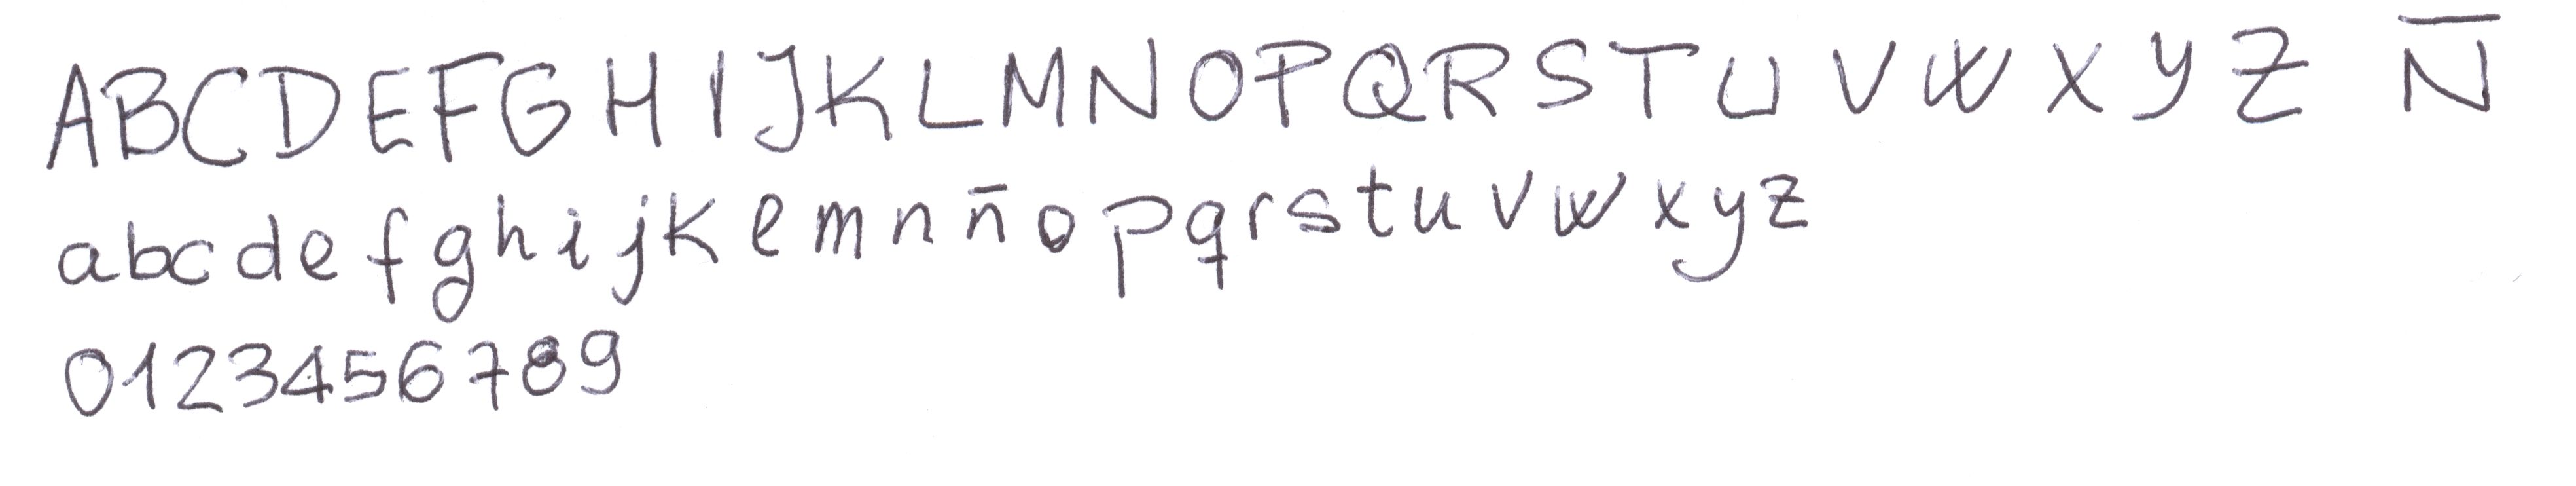 ABCDEFGHIJKLMNOPQRSTUVWXYZ Ñ
abcdefghijklmnñopqrstuvwxyz
0123456789